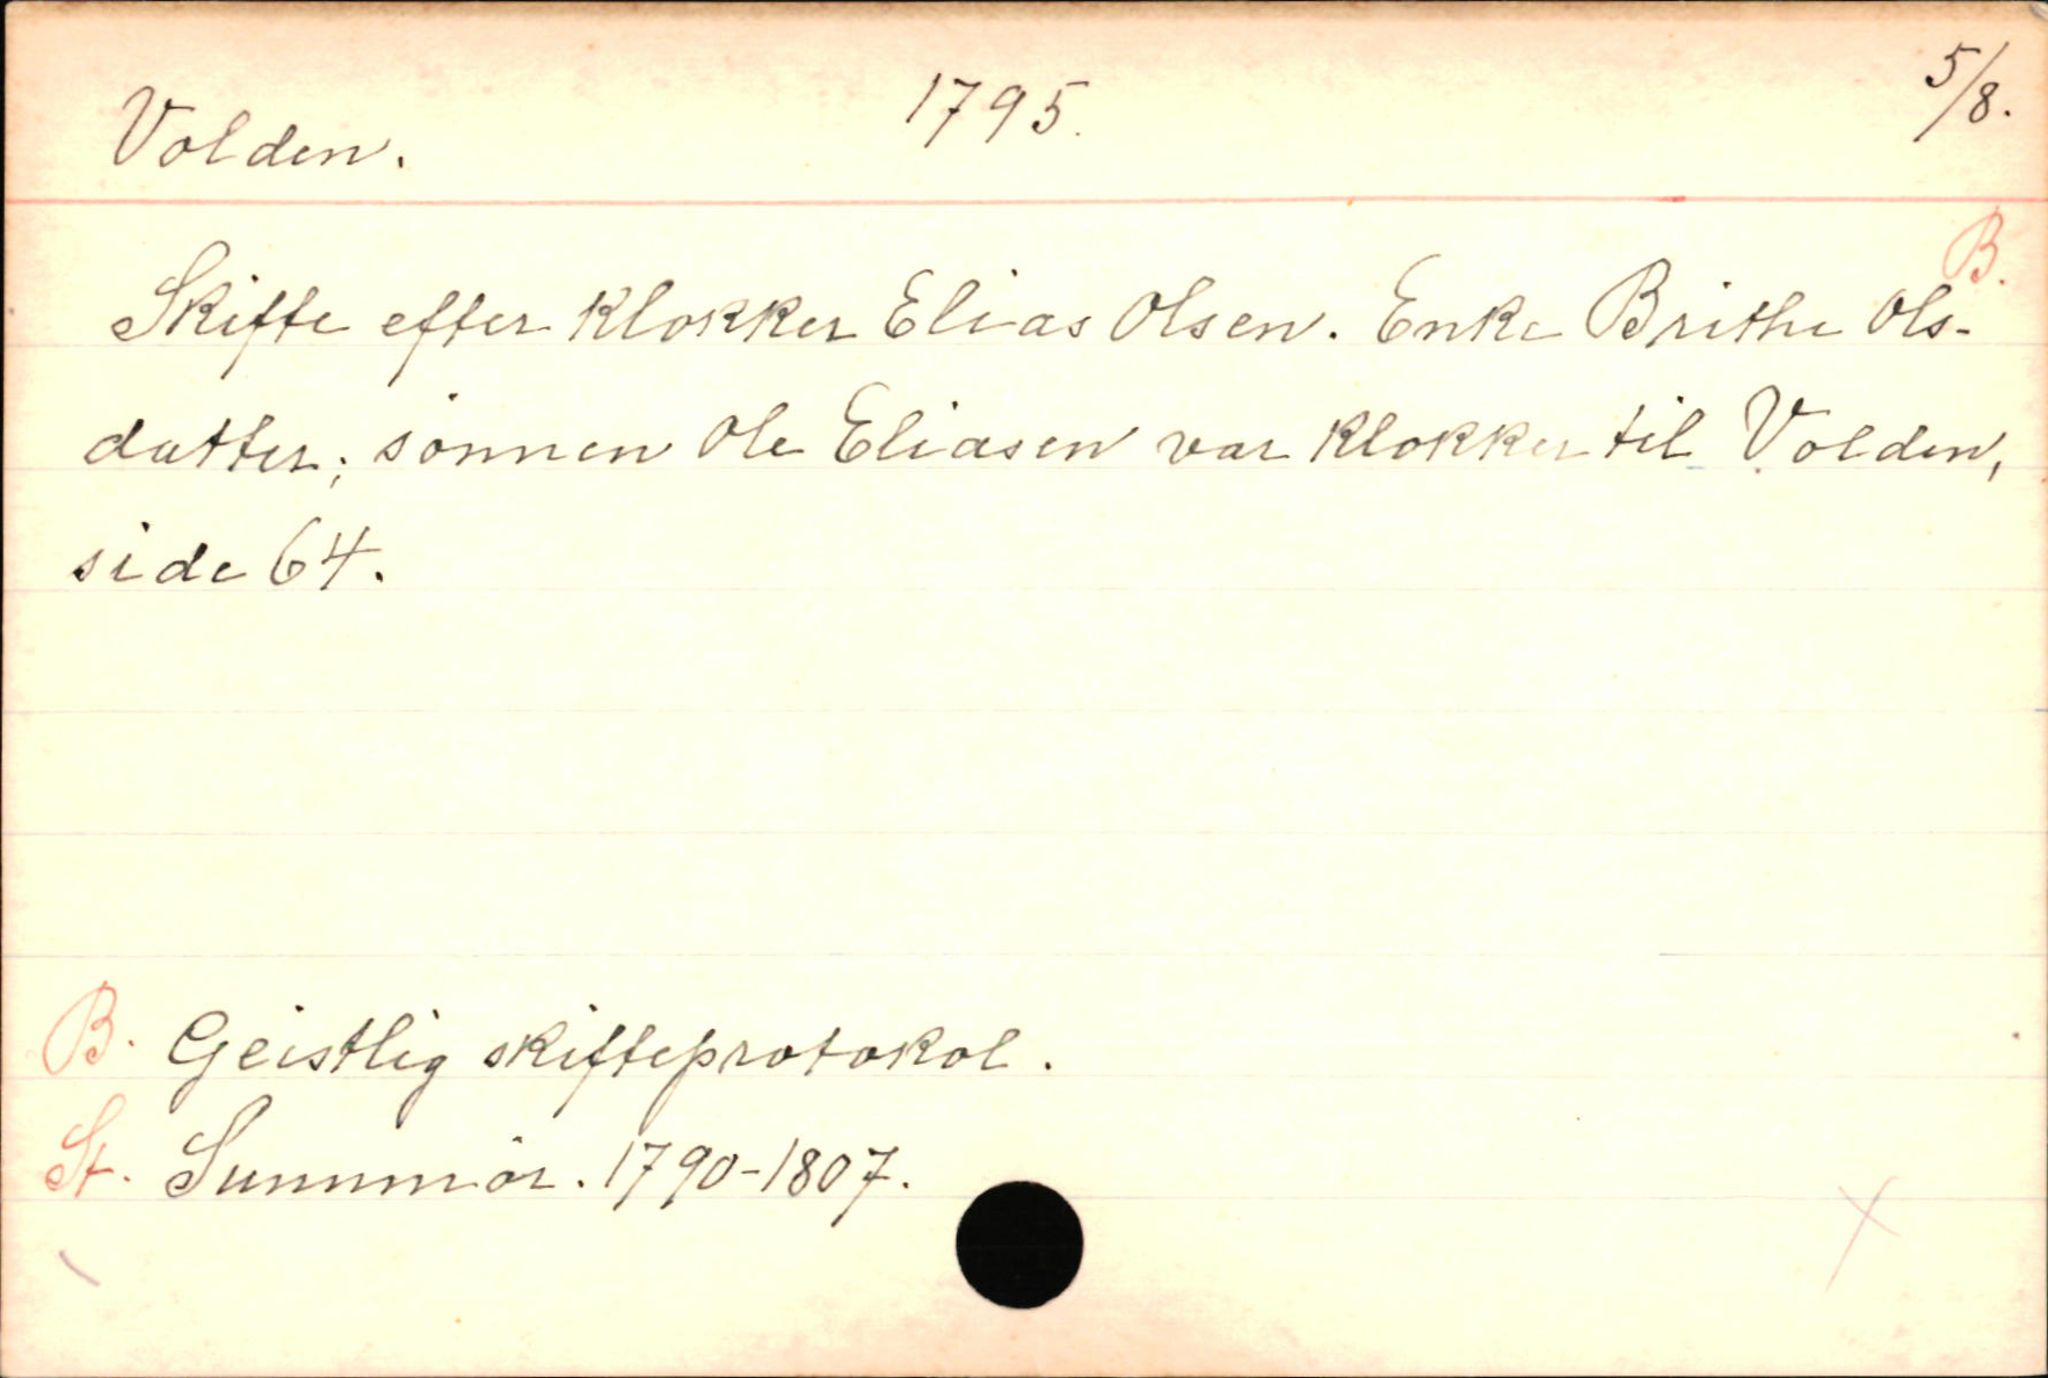 Volden. 1795. 5/8.
B.
Skifte efter klokker Elias Olsen. Enke Brithe Ols-
datter; sønnen Ole Eliasen var klokker til Volden,
side 64.
B. Geistlig skifteprotokol.
St. Sunnmör. 1790-1807.